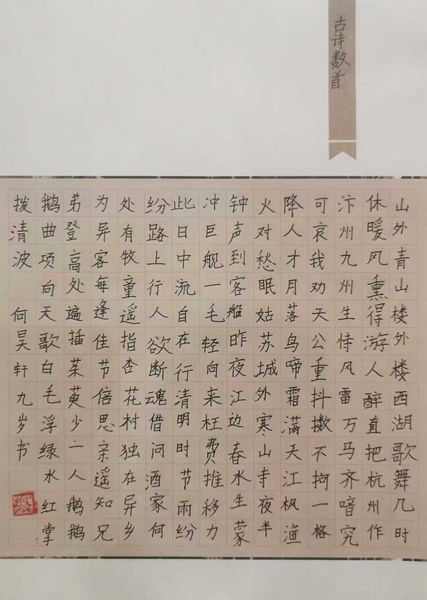 古诗数首
山外青山楼外楼西湖歌舞几时
休暖风熏得游人醉直把杭州作
汴州九州生恃风雷万马齐喑究
可哀我劝天公重抖擞不拘一格
降人才月落乌啼霜满天江枫渔
火对愁眠姑苏城外寒山寺夜半
钟声到客船昨夜江边春水生蒙
冲巨舰一毛轻向来枉费推移力
此日中流自在行清明时节雨纷
纷路上行人欲断魂借问酒家何
处有牧童遥指杏花村独在异乡
为异客每逢佳节倍思亲遥知兄
弟登高处遍插茱萸少一人鹅鹅
鹅曲项向天歌白毛浮绿水红掌
拨清波 何昊轩九岁书